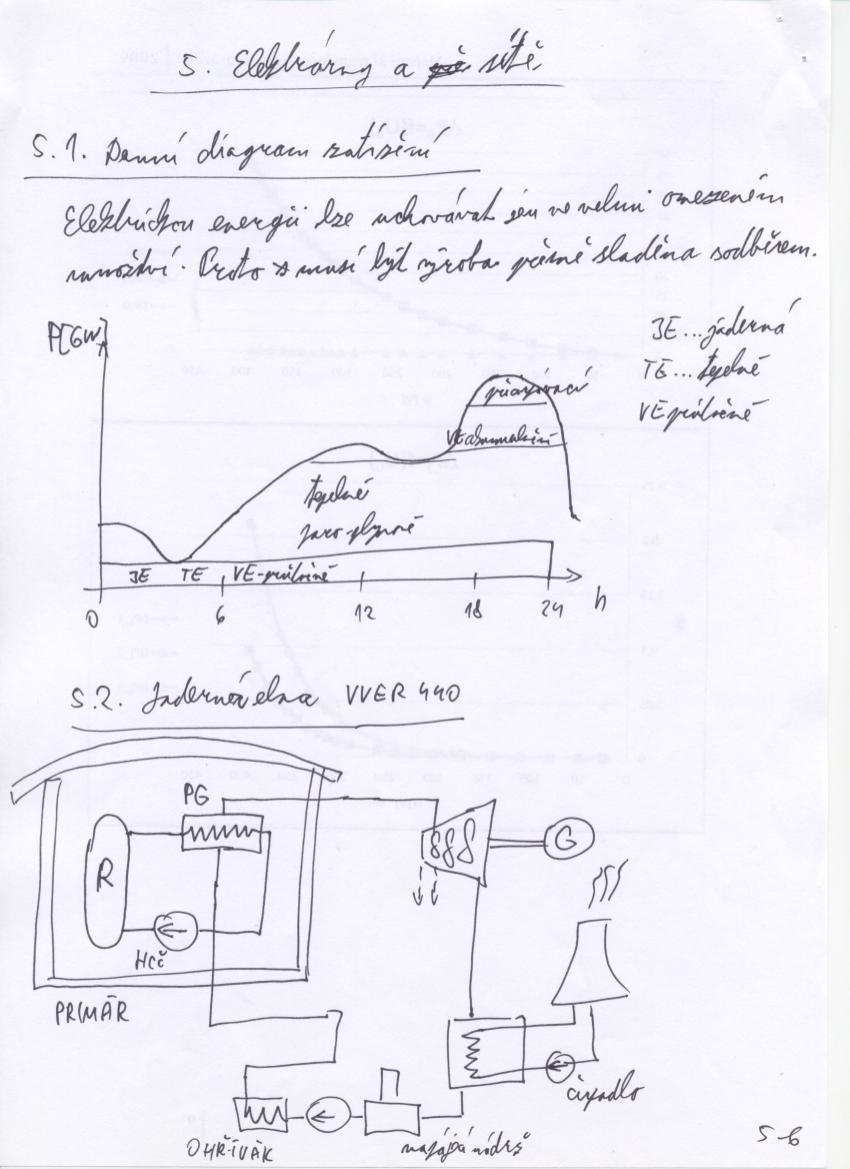 5. Elektrárny a sítě
5.1. Denní diagram zatížení
Elektrickou energii lze uchovávat jen ve velmi omezeném
množství. Proto musí být výroba přesně sladěna s odběrem.
P[GW]
JE...jaderná
TE...tepelné
VE-průtočné
VE akumulační
tepelné
paro-plynové
JE TE VE-průtočné
0 6 12 18 24 h
5.2. Jaderná elna VVER 440
PG
R
G
HCČ
PRIMÁR
čerpadlo
OHŘÍVÁK
napájecí nádrž
5-6